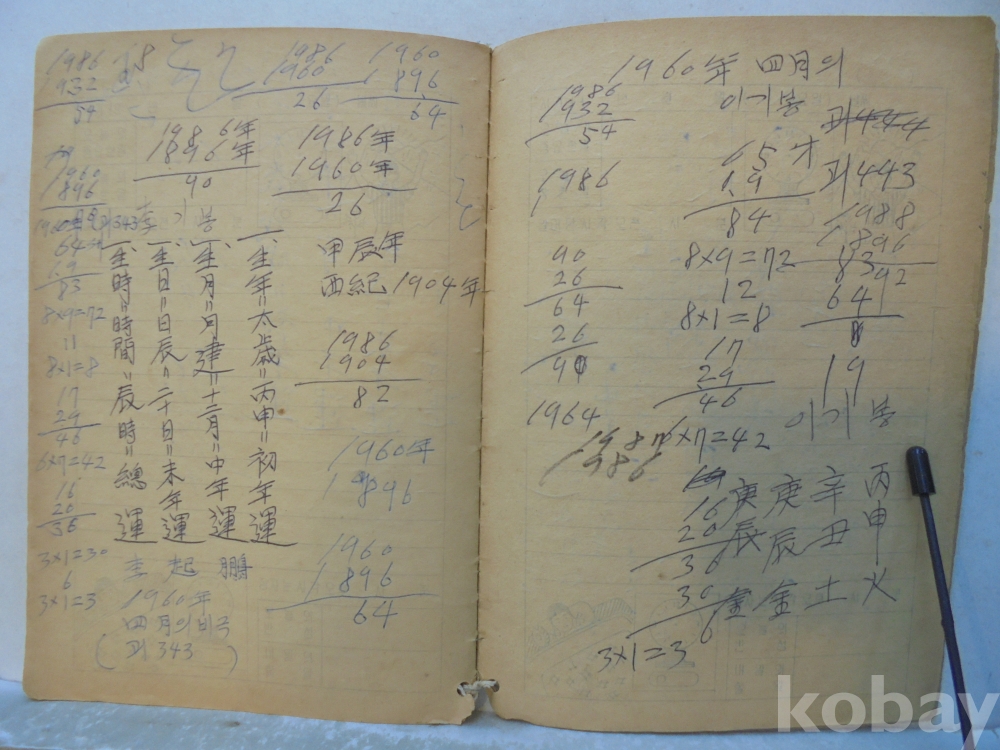 1986
932
54
1986
1960
26
1960
1896
64
1986年
1896年
90
1986年
1960年
26
1960
1896
64
19
83
8×9=72
11
8×1=8
17
29
46
6×7=42
16
20
36
3×1=30
6
3×1=3
이기붕
一、生年=太歲=丙申=初年運
一、生月=月建=十二月=中年運
一、生日=日辰=二十日=末年運
一、生時=時間=辰時=總運
甲辰年
西紀1904年
1986
1904
82
1960年
1896
1960
1896
64
李起鵬
1960年
四月의비극
(괘343)
1960年 四月의
이기붕
1986
1932
54
괘444
괘443
1986
65才
19
84
8×9=72
12
8×1=8
17
29
46
6×7=42
16
20
36
30
6
3×1=3
90
26
64
26
90
1964
1987
1986
1988
1896
92
83
64
19
이기붕
丙申
辛丑
庚辰
庚辰
火
土
金
金
kobay